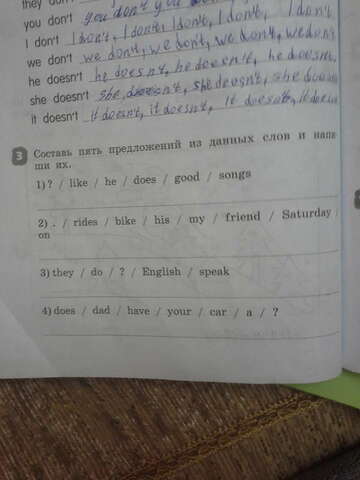 they don't
you don't you don't you don't
I don't I don't, I don't, I don't, I don't, I don't
we don't we don't, we don't, we don't, we don't
he doesn't he doesn't, he doesn't, he doesn't
she doesn't she doesn't, she doesn't, she doesn't
it doesn't it doesn't, it doesn't, it doesn't, it doesn't
3 Составь пять предложений из данных слов и напи
ши их.
1) ? / like / he / does / good / songs
2) . / rides / bike / his / my / friend / Saturday /
on
3) they / do / ? / English / speak
4) does / dad / have / your / car / a / ?